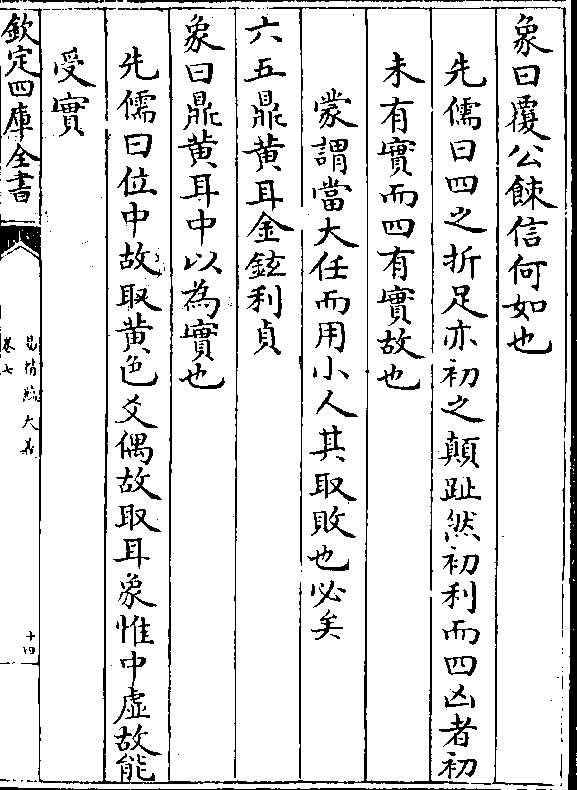 象曰覆公餗信何如也
先儒曰四之折足亦初之顛趾然初利而四凶者初
未有實而四有實故也
蒙謂當大任而用小人其取敗也必矣
六五鼎黃耳金鉉利貞
象曰鼎黃耳中以為實也
先儒曰位中故取黃色爻偶故取耳象惟中虛故能
受實
欽定四庫全書
卷七
十四